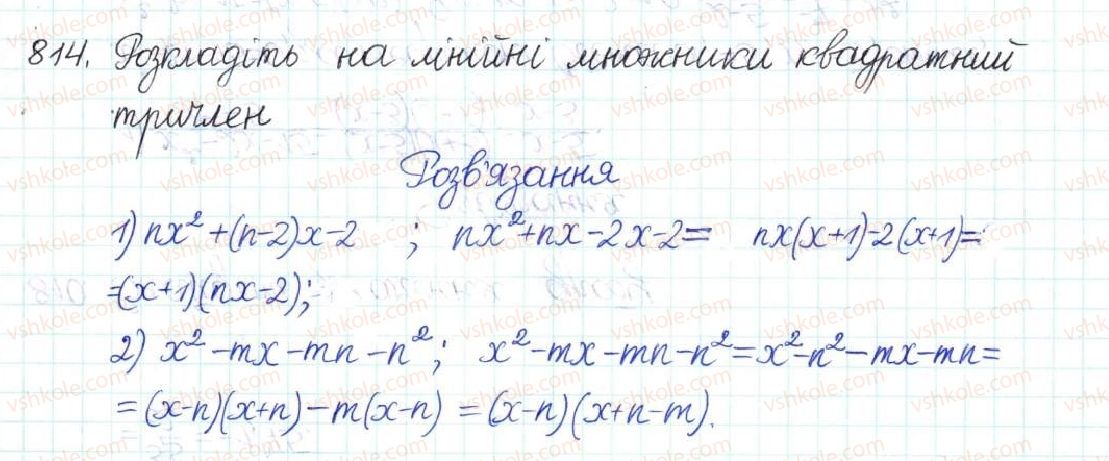 814. Розкладіть на лінійні множники квадратний
тричлен
Розв'язання
1) nx²+(n-2)x-2 ; nx²+nx-2x-2= nx(x+1)-2(x+1)=
=(x+1)(nx-2);
2) x²-mx-mn-n²; x²-mx-mn-n²=x²-n²-mx-mn=
=(x-n)(x+n)-m(x-n) =(x-n)(x+n-m).